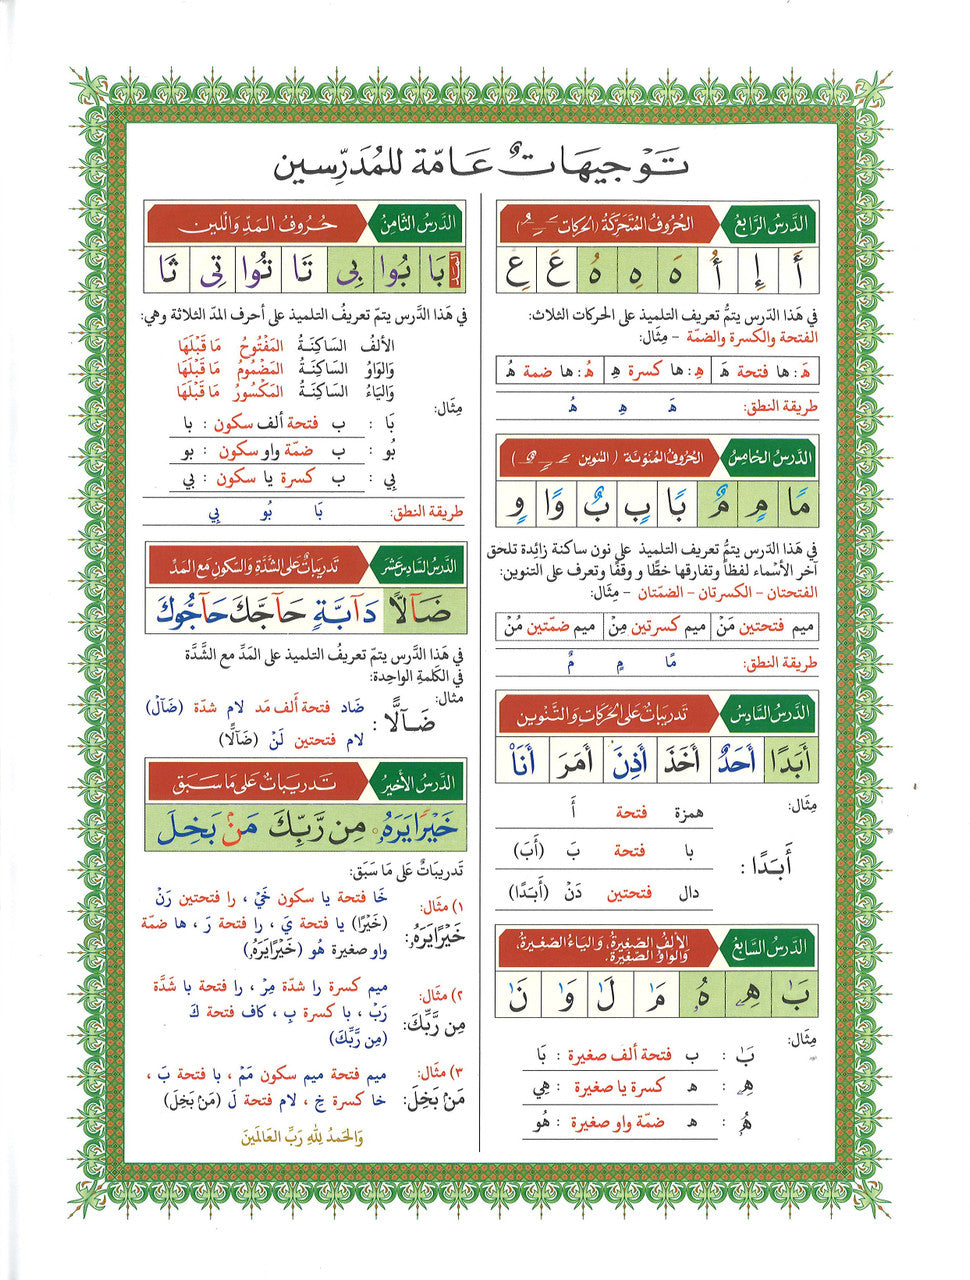 تَوْجِيهَاتٌ عَامّة للمُدَرِّسين
الدَّرسُ الرَّابعُ
الحُرُوفُ المُتَحَرِكَةُ (الحركات ــَـِـُ)
أَ إِ أُ هَ هِ هُ عَ عِ
في هَذا الدَّرس يتمُّ تعريفُ التلميذ على الحركات الثلاث:
الفتحة والكسرة والضمّة - مِثَال:
هَ: ها فتحة هَ هِ: ها كسرة هِ هُ: ها ضمة هُ
طريقة النطق: هَ هِ هُ
الدَّرسُ الخامِسُ
الحُرُوفُ المُنَوّنَة ( التنوين ــًـٍـٌ )
مًا مٍ مٌ بًا بٍ بٌ وًا وٍ
في هَذا الدّرس يتمُّ تعريفُ التلميذ على نون ساكنة زائِدة تلحق
آخر الأسْماء لفظاً وتفارقها خطًّا و وقفًا وتعرف على التنوين:
الفتحتان - الكسرتان - الضمّتان - مِثَال:
ميم فتحتين مَنْ ميم كسرتين مِنْ ميم ضمّتين مُنْ
طريقة النطق: مًا مٍ مٌ
الدَّرسُ السَّادِسُ
تَدريبَاتٌ عَلى الحَرَكَاتِ والتَّنْوين
أَبَدًا أَحَدٌ أَخَذَ أَذِنَ أَمَرَ أَنَا۠
مِثَال:
أَبَدًا :
همزة فتحة أَ
با فتحة بَ (أَبَ)
دال فتحتين دَنْ (أَبَدًا)
الدَّرسُ السَّابعُ
الألِفُ الصَّغِيرةُ، وَاليَاءُ الصَّغِيرةُ،
وَالوَاوُ الصَّغِيرَةُ،
بَٰ هِۦ هُۥ مَٰ لَٰ وَٰ نَٰ
مِثَال:
بَٰ : ب فتحة ألف صغيرة : بَا
هِۦ : ه كسرة يا صغيرة : هِي
هُۥ : ه ضمّة واو صغيرة : هُو
الدَّرسُ الثّامنُ
حُرُوفُ المَدِّ وَاللّين
المَــد
بَا بُوا بِي تَا تُوا تِي ثَا
في هَذا الدَّرس يتمّ تعريفُ التلميذ على أحرف المدّ الثلاثة وهي:
الألفُ السَاكِنَةُ المَفْتُوحُ مَا قَبْلَهَا
وَالوَاوُ السَاكِنَةُ المَضْمُومُ مَا قَبْلَهَا
وَاليَاءُ السَاكِنَةُ المَكْسُورُ مَا قَبْلَهَا
مِثَال:
بَا : ب فتحة ألف سكون : با
بُو : ب ضمّة واو سكون : بو
بِي : ب كسرة يا سكون : بي
طريقة النطق: بَا بُو بِي
الدَّرسُ السّادسَ عَشَر
تَدريبَاتٌ عَلى الشَّدَّةِ وَالسّكون مَع المَدّ
ضَآلًا دَآبَّةٍ حَآجَّكَ حَآجُّوكَ
في هَذا الدَّرس يتمّ تعريفُ التلميذ على المَدِّ مع الشَّدَّة
في الكَلمةِ الواحِدة:
مثال:
ضَـآلًّا :
ضَاد فتحة أَلف مَد لام شدّة (ضَآلْ)
لام فتحتين لَنْ (ضَآلًّا)
الدَّرسُ الأخيرُ
تَدريبَاتٌ عَلى مَا سَبَق
خَيْرًا يَرَهُۥ مِن رَّبِّكَ مَنۢ بَخِلَ
تَدريبَاتٌ عَلى مَا سَبَقَ:
١) مثَال:
خَيْرًا يَرَهُۥ:
خَا فتحة يا سكون خَيْ ، را فتحتين رَنْ
(خَيْرًا) يا فتحة يَ ، را فتحة رَ ، ها ضمّة
واو صغيرة هُو (خَيْرًا يَرَهُۥ)
٢) مثَال:
مِن رَّبِّكَ:
ميم كسرة را شدّة مِرْ ، را فتحة با شَدَّة
رَبْ ، با كسرة بِ ، كاف فتحة كَ
(مِن رَّبِّكَ)
٣) مثَال:
مَنۢ بَخِلَ:
ميم فتحة ميم سكون مَمْ ، با فتحة بَ ،
خا كسرة خِ ، لام فتحة لَ (مَنۢ بَخِلَ)
وَالحَمدُ للهِ رَبِّ العَالَمين